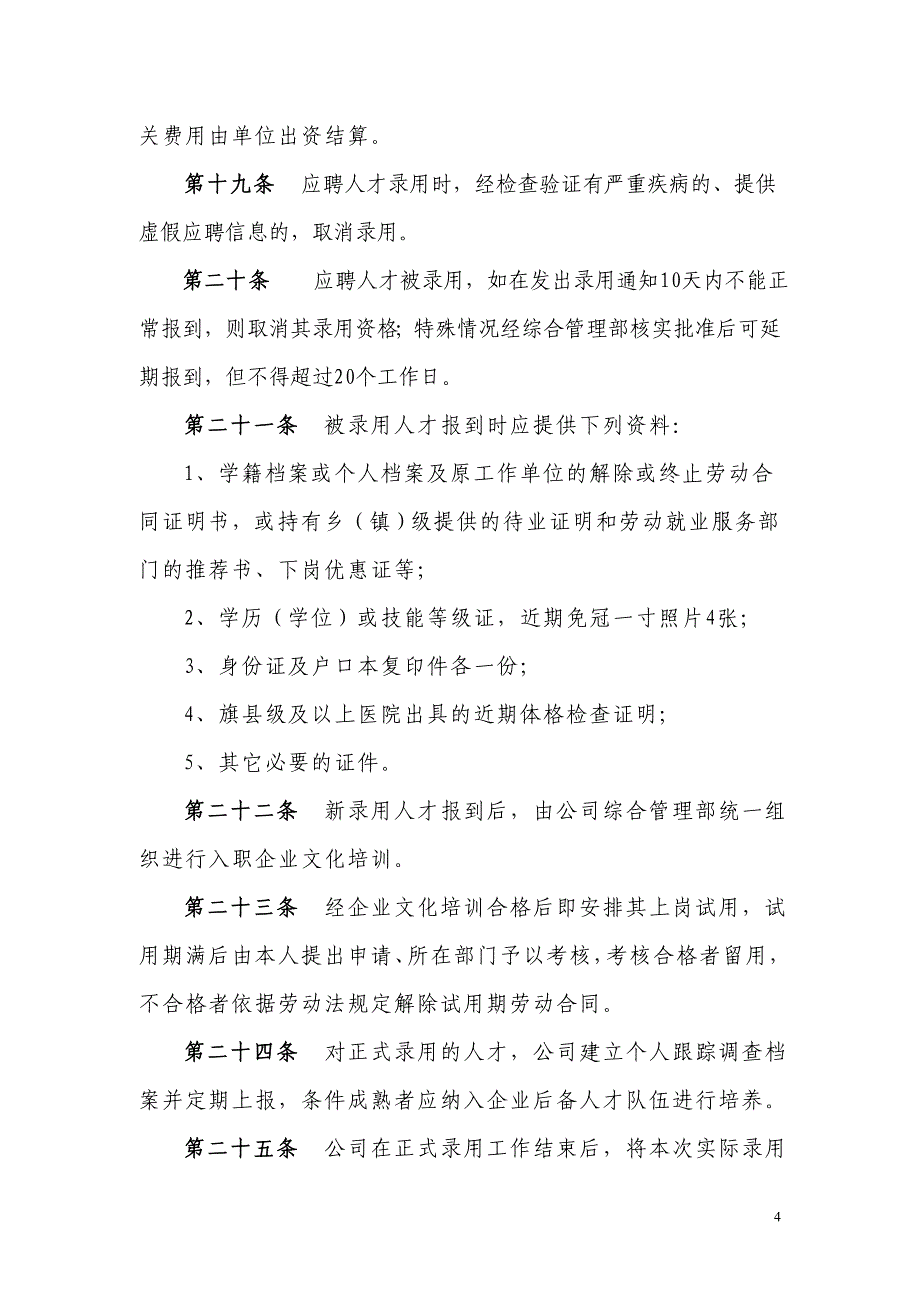 关费用由单位出资结算。
第十九条　应聘人才录用时，经检查验证有严重疾病的、提供
虚假应聘信息的，取消录用。
第二十条　　应聘人才被录用，如在发出录用通知10天内不能正
常报到，则取消其录用资格；特殊情况经综合管理部核实批准后可延
期报到，但不得超过20个工作日。
第二十一条　被录用人才报到时应提供下列资料：
1、学籍档案或个人档案及原工作单位的解除或终止劳动合
同证明书，或持有乡（镇）级提供的待业证明和劳动就业服务部
门的推荐书、下岗优惠证等；
2、学历（学位）或技能等级证，近期免冠一寸照片4张；
3、身份证及户口本复印件各一份；
4、旗县级及以上医院出具的近期体格检查证明；
5、其它必要的证件。
第二十二条　新录用人才报到后，由公司综合管理部统一组
织进行入职企业文化培训。
第二十三条　经企业文化培训合格后即安排其上岗试用，试
用期满后由本人提出申请、所在部门予以考核，考核合格者留用，
不合格者依据劳动法规定解除试用期劳动合同。
第二十四条　对正式录用的人才，公司建立个人跟踪调查档
案并定期上报，条件成熟者应纳入企业后备人才队伍进行培养。
第二十五条　公司在正式录用工作结束后，将本次实际录用
4